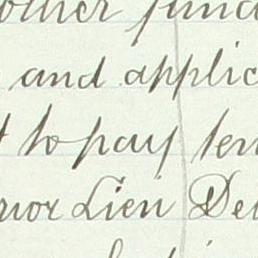 other fund
and applic
to pay ten
nior Lien De